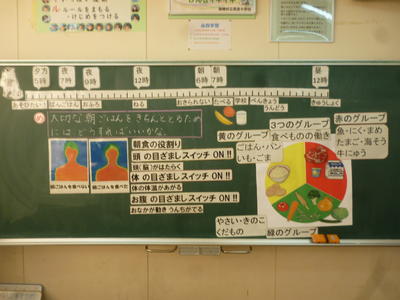 ルールをまもる
・けじめをつける
夕方
5時
夜
7時
夜
9時
夜
12時
朝
6時
朝
7時
昼
12時
あそびたい
ばんごはん
おふろ
ねる
おきられない
たべる
学校
べんきょう
うんどう
きゅうしょく
め
大切な朝ごはんをきちんととるため
には、どうすればいいかな。
朝ごはんを食べない
朝ごはんを食べた
朝食の役割り
頭 の目ざましスイッチ ON !!
頭(脳)がはたらく
体 の目ざましスイッチ ON !!
体の体温があがる
お腹 の目ざましスイッチ ON !!
おなかが動き うんちがでる
黄のグループ
ごはん・パン
いも・ごま
3つのグループ
食べものの働き
赤のグループ
魚・にく・まめ
たまご・海そう
牛にゅう
やさい・きのこ
くだもの
緑のグループ